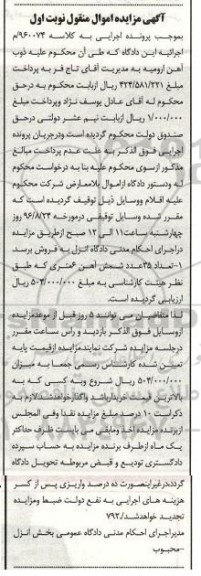 آگهی مزایده اموال منقول نوبت اول
بموجب پرونده اجرایی به کلاسه ۹۶۰۰۷۴/م
اجرائیه این دادگاه که طی آن محکوم علیه ذوب
آهن ارومیه به مدیریت آقای تاج فر به پرداخت
مبلغ ۴۲۴/۵۸۱/۲۲۱ ریال ازبابت محکوم به درحق
محکوم له آقای عادل یوسف نژاد وپرداخت مبلغ
۱/۰۰۰/۰۰۰ ریال ازبابت نیم عشر دولتی درحق
صندوق دولت محکوم گردیده است ودرجریان پرونده
اجرایی فوق الذکر به علت عدم پرداخت مبالغ
مذکور ازسوی محکوم علیه بنا به درخواست محکوم
له ودستور دادگاه ازاموال بلامعارض شرکت محکوم
علیه اقلام ووسایل ذیل توقیف گردیده است که
مقرر شده وسایل توقیفی درمورخه ۹۶/۸/۲۴ روز
چهارشنبه ساعت۱۱ الی ۱۲ صبح ازطریق مزایده
دراجرای احکام مدنی دادگاه انزل به فروش برسد
۱-تعداد ۳۵عدد شمش آهن ۶متری که طبق
نظر هیئت کارشناسی به مبلغ ۵۰۴/۰۰۰/۰۰۰ ریال
ارزیابی گردیده است.
لذا متقاضیان می توانند ۵ روز قبل از موعدمزایده
ازوسایل فوق الذکر بازدید و راس ساعت مقرر
درجلسه مزایده شرکت نمایند.مزایده ازقیمت پایه
تعیین شده کارشناس رسمی جمعا به میزان
۵۰۴/۰۰۰/۰۰۰ ریال شروع وبه کسی که به
بالاترین قیمت خریدارباشد واگذارخواهدشد.لازم به
ذکراست ۱۰ درصد مبلغ مزایده نقدا وفی المجلس
ازبرنده مزایده اخذ ومابقی می بایست ظرف حداکثر
یک ماه ازطرف برنده مزایده به حساب سپرده
دادگستری تودیع و قبض مربوطه تحویل دادگاه
گردددرغیراینصورت ده درصد واریزی پس از کسر
هزینه های اجرایی به نفع دولت ضبط ومزایده
تجدید خواهدشد./۷۹۲
مدیراجرای احکام مدنی دادگاه عمومی بخش انزل
-محبوب